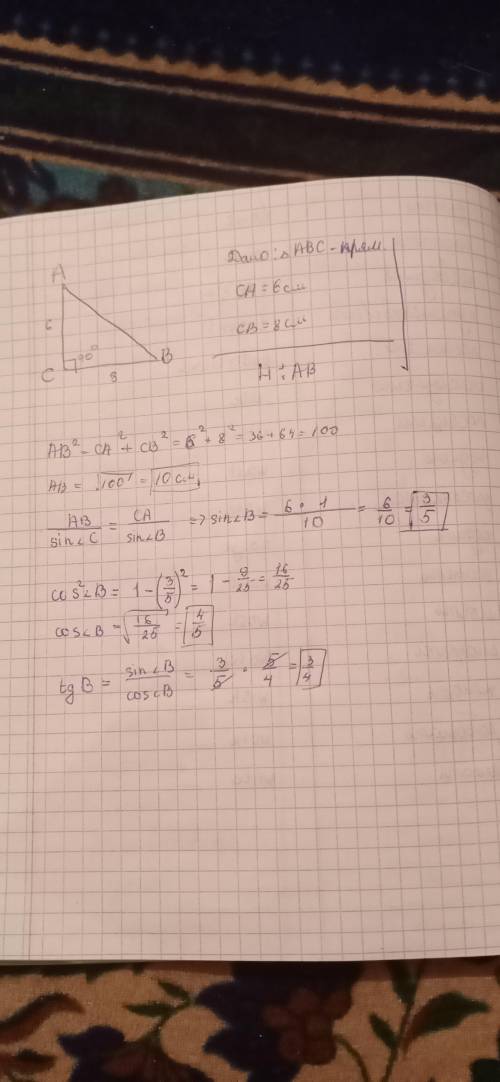 A
6
C 90° B
8
Дано: △ABC - прям.
CA = 6 см
CB = 8 см
Н: AB
AB² = CA² + CB² = 6² + 8² = 36 + 64 = 100
AB = √100 = 10 см
AB/sin∠C = CA/sin∠B => sin∠B = 6 · 1/10 = 6/10 = 3/5
cos²∠B = 1 - (3/5)² = 1 - 9/25 = 16/25
cos∠B = √16/25 = 4/5
tg B = sin∠B/cos∠B = 3/5 · 5/4 = 3/4